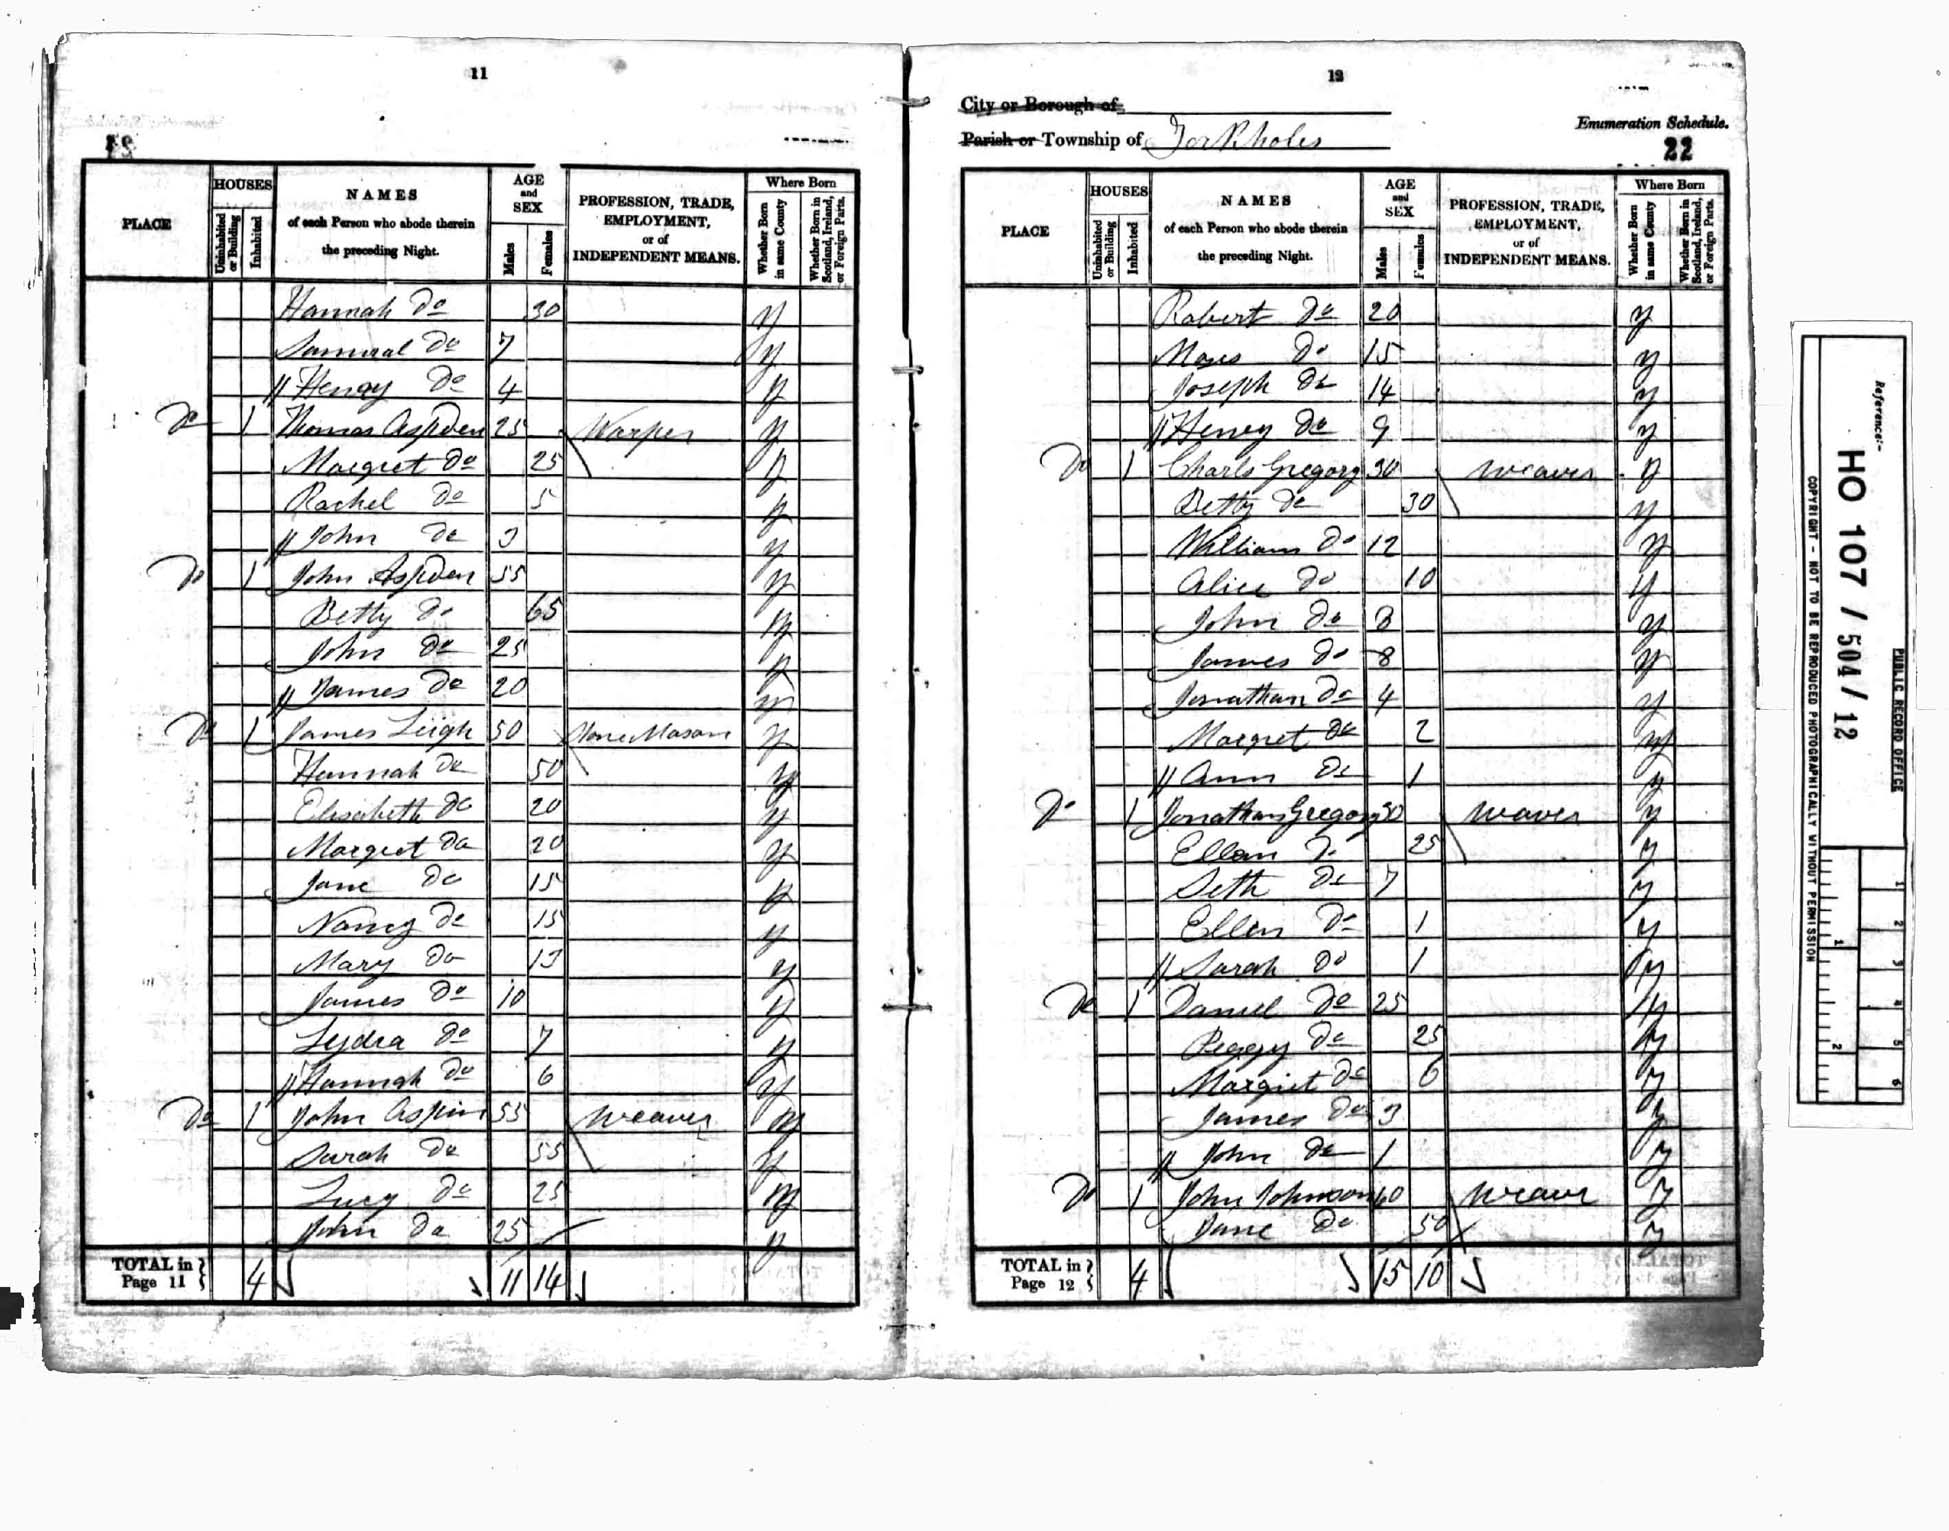 11
HOUSES
NAMES
AGE and SEX
PROFESSION, TRADE, EMPLOYMENT, or of INDEPENDENT MEANS.
Where Born
PLACE
Uninhabited or Building
Inhabited
of each Person who abode therein the preceding Night.
Males
Females
Whether Born in same County
Whether Born in Scotland, Ireland, or Foreign Parts.
Hannah Do 30 y
Samual Do 7 y
// Henry Do 4 y
Do 1 Thomas Aspden 25 Warper y
Margret Do 25 y
Rachel Do 5 y
// John Do 3 y
Do 1 John Aspden 55 y
Betty Do 65 y
John Do 25 y
// James Do 20 y
Do 1 James Leigh 50 Stone Mason y
Hannah Do 50 y
Elisabeth Do 20 y
Margret Do 20 y
Jane Do 15 y
Nancy Do 15 y
Mary Do 13 y
James Do 10 y
Lydia Do 7 y
// Hannah Do 6 y
Do 1 John Aspin 55 Weaver y
Sarah Do 55 y
Lucy Do 25 y
John Do 25 y
TOTAL in Page 11 } 4 11 14
12
City or Borough of
Parish or Township of Tockholes
Enumeration Schedule.
22
HOUSES
NAMES
AGE and SEX
PROFESSION, TRADE, EMPLOYMENT, or of INDEPENDENT MEANS.
Where Born
PLACE
Uninhabited or Building
Inhabited
of each Person who abode therein the preceding Night.
Males
Females
Whether Born in same County
Whether Born in Scotland, Ireland, or Foreign Parts.
Robert Do 20 y
Moses Do 15 y
Joseph Do 14 y
// Henry Do 9 y
Do 1 Charls Gregory 30 Weaver y
Betty Do 30 y
William Do 12 y
Alice Do 10 y
John Do 8 y
James Do 8 y
Jonathan Do 4 y
Margret Do 2 y
// Ann Do 1 y
Do 1 Jonathan Gregory 30 Weaver y
Ellen Do 25 y
Seth Do 7 y
Ellen Do 1 y
// Sarah Do 1 y
Do 1 Daniel Do 25 y
Peggy Do 25 y
Margret Do 6 y
James Do 3 y
// John Do 1 y
Do 1 John Johnson 60 Weaver y
Jane Do 50 y
TOTAL in Page 12 } 4 15 10
Reference:-
HO 107 / 504 / 12
PUBLIC RECORD OFFICE
COPYRIGHT - NOT TO BE REPRODUCED PHOTOGRAPHICALLY WITHOUT PERMISSION
1 2 3 4 5 6
1 2